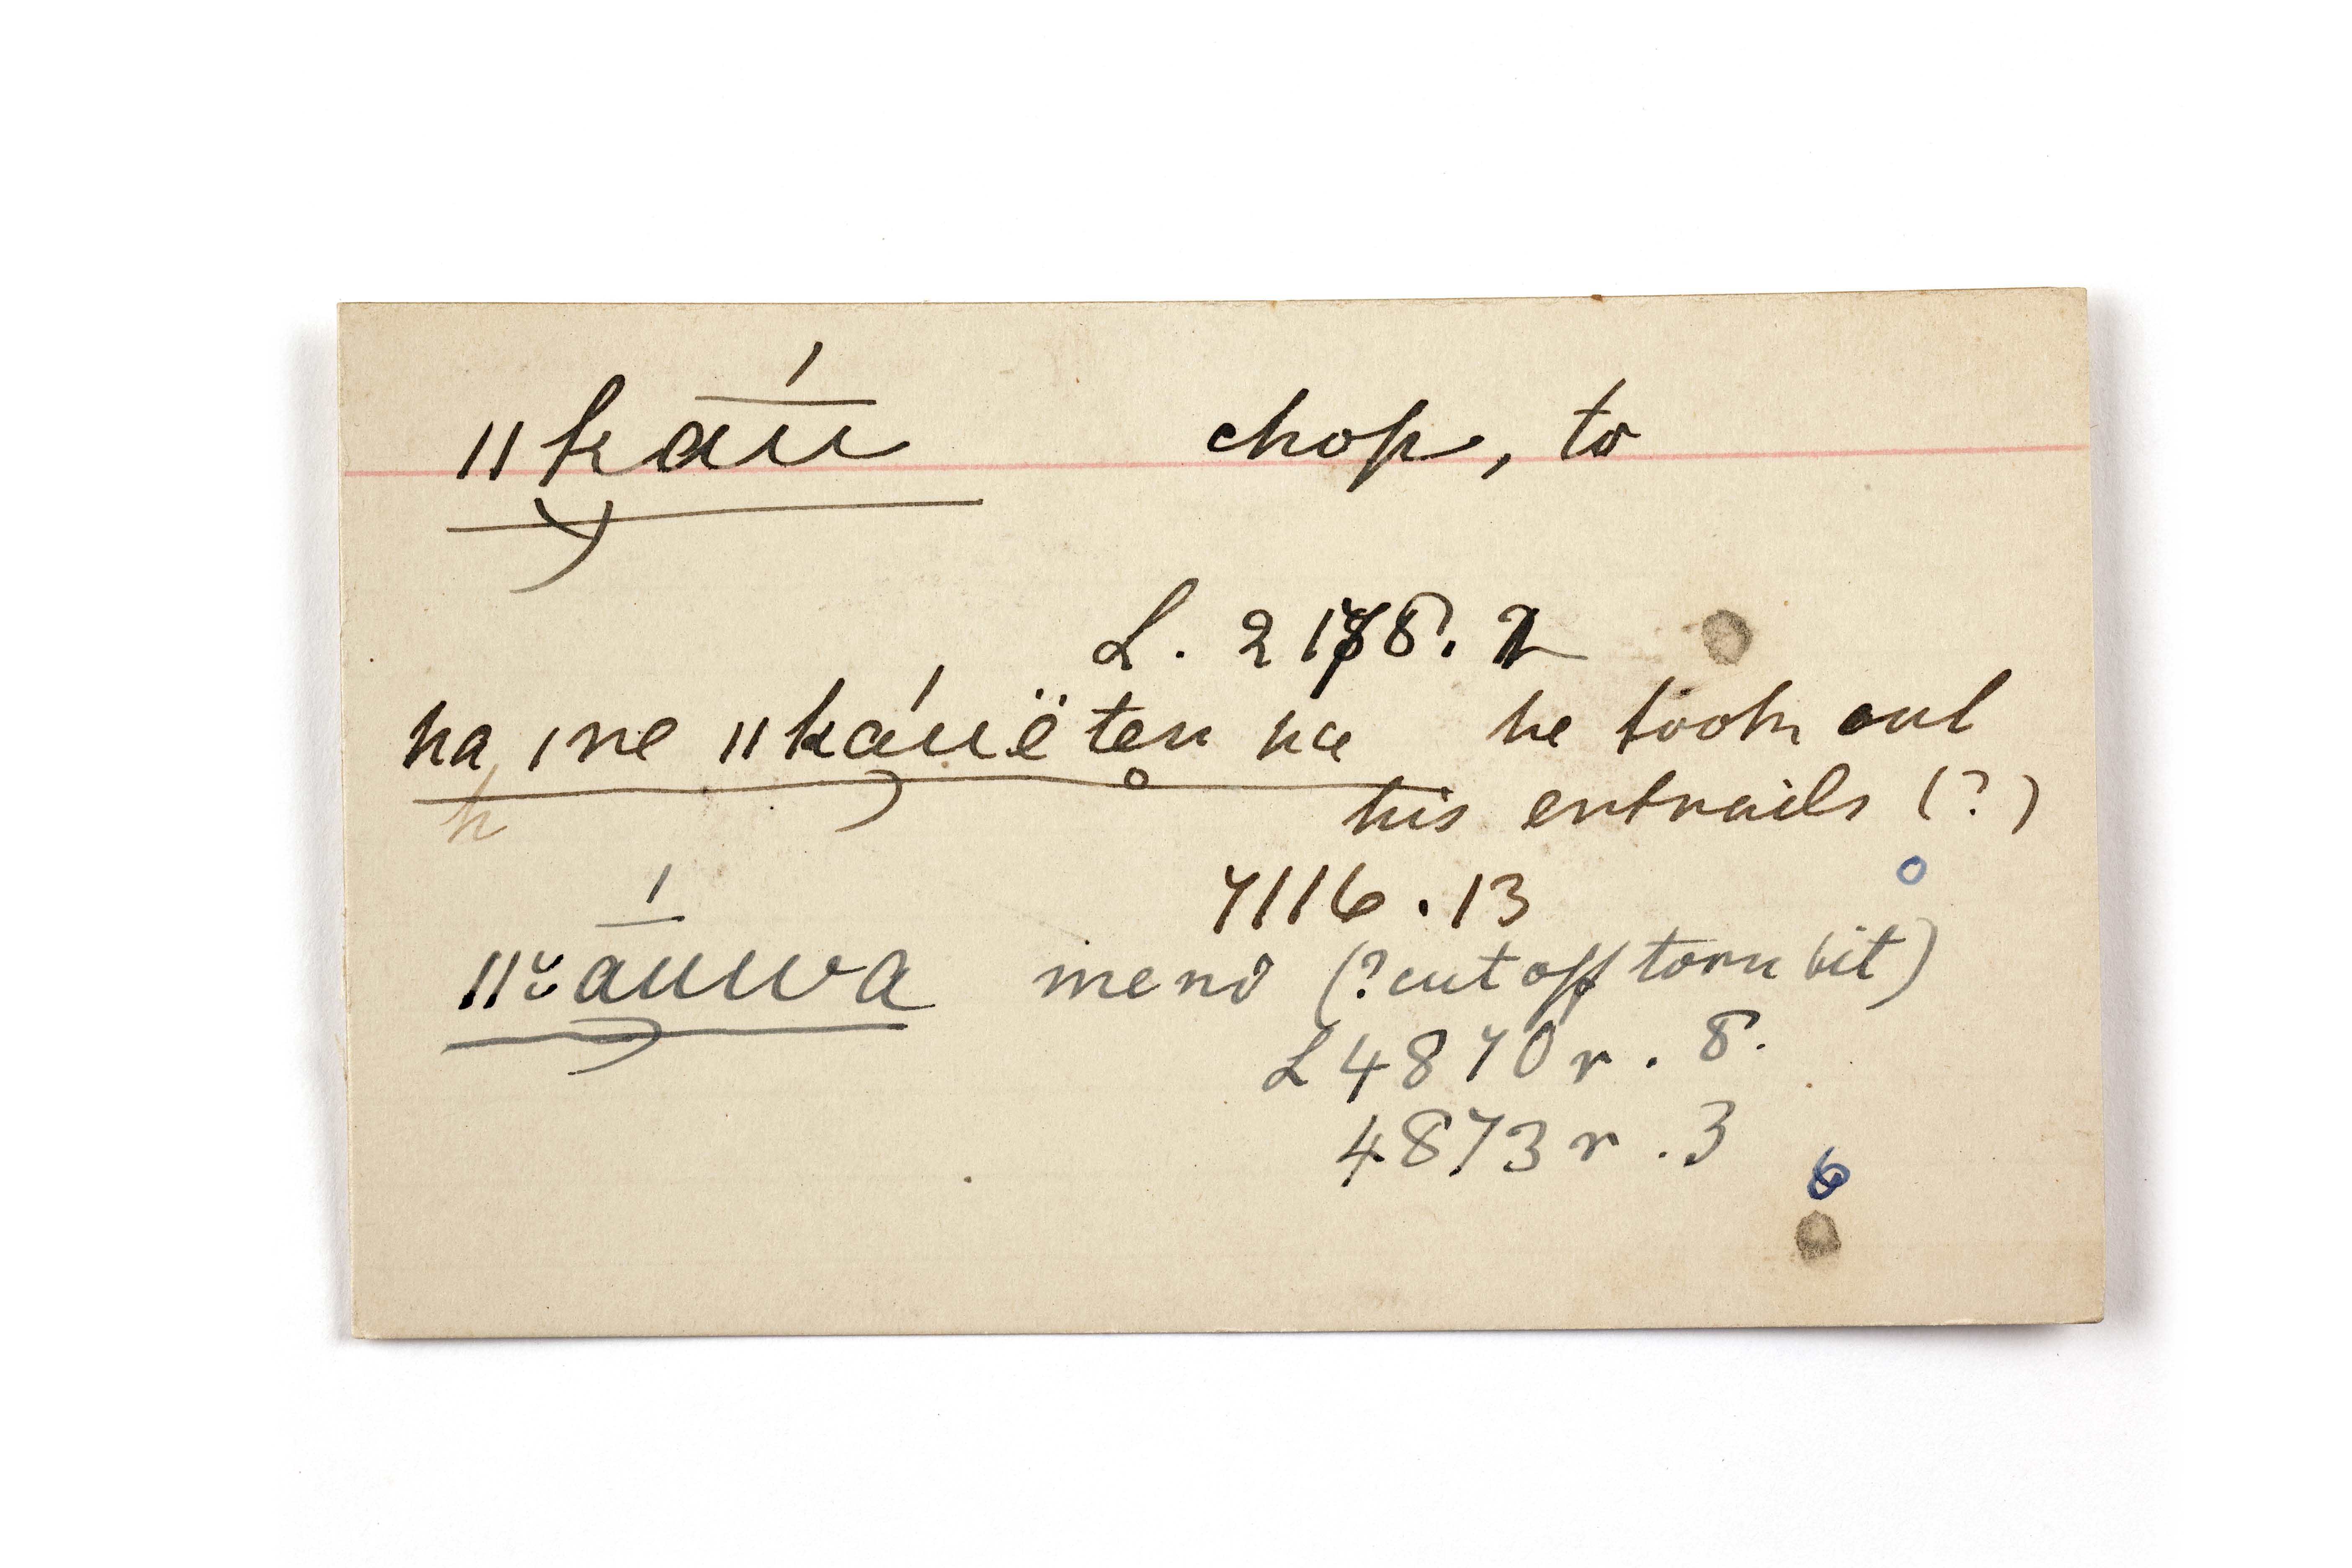 ǁkā́u chop, to
L. 2178. 2
ha ǀne ǁkáuëten ha he took out
his entrails (?)
h
7116.13
ǁā́uwa mend (? cut off torn bit)
L 4870 r. 8.
4873 r. 3
6